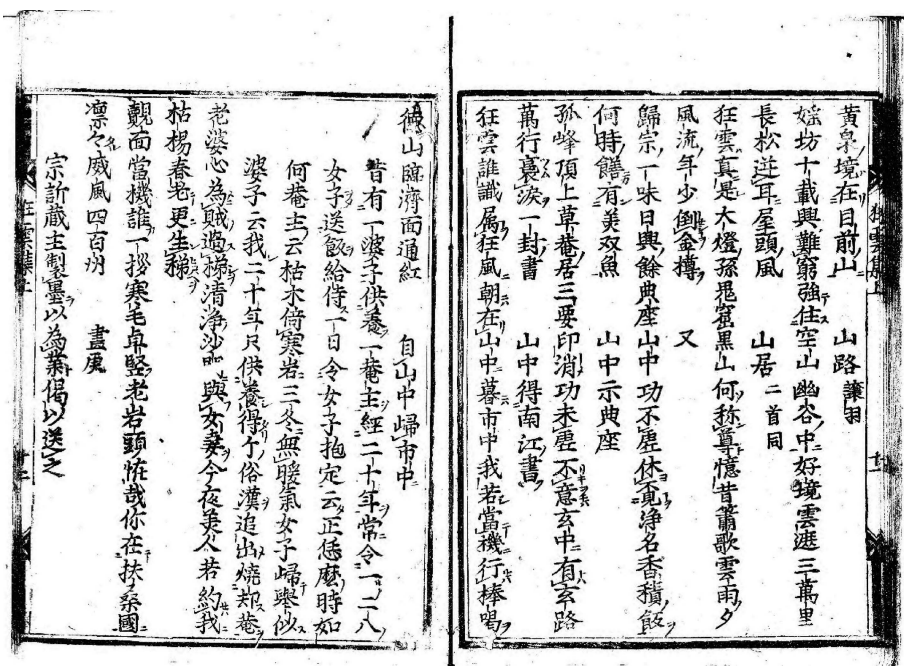 黄泉境在目前山　山路讓羽
婬坊十載興難窮強住空山幽谷中好境雲遮三萬里
長松逆耳屋頭風　山居二首同
狂雲真是大燈孫鬼窟黒山何称尊憶昔簫歌雲雨夕
風流年少倒金樽　又
歸宗一味日興餘典座山中功不虚休覓浄名香積飯
何時饍有美双魚　山中示典座
孤峰頂上草菴居三要印消功未虚不意玄中有玄路
萬行衰淚一封書　山中得南江書
狂雲誰識属狂風朝在山中暮市中我若當機行棒喝
狂雲集上　十一
徳山臨濟面通紅　自山中帰市中
昔有一婆子供養一菴主經二十年常令一二八
女子送飯給侍一日令女子抱定云正恁麼時如
何菴主云枯木倚寒岩三冬無暖氣女子歸舉似
婆子云我二十年只供養得个俗漢追出燒却菴
老婆心為賊過梯清浄沙門與女妻今夜美人若約我
枯楊春老更生稊
覿面當機誰一拶寒毛卓竪老岩頭恠哉你在扶桑國
凛々威風四百州　畫虎
宗訢蔵主製墨以為業偈以送之
狂雲集上　十二